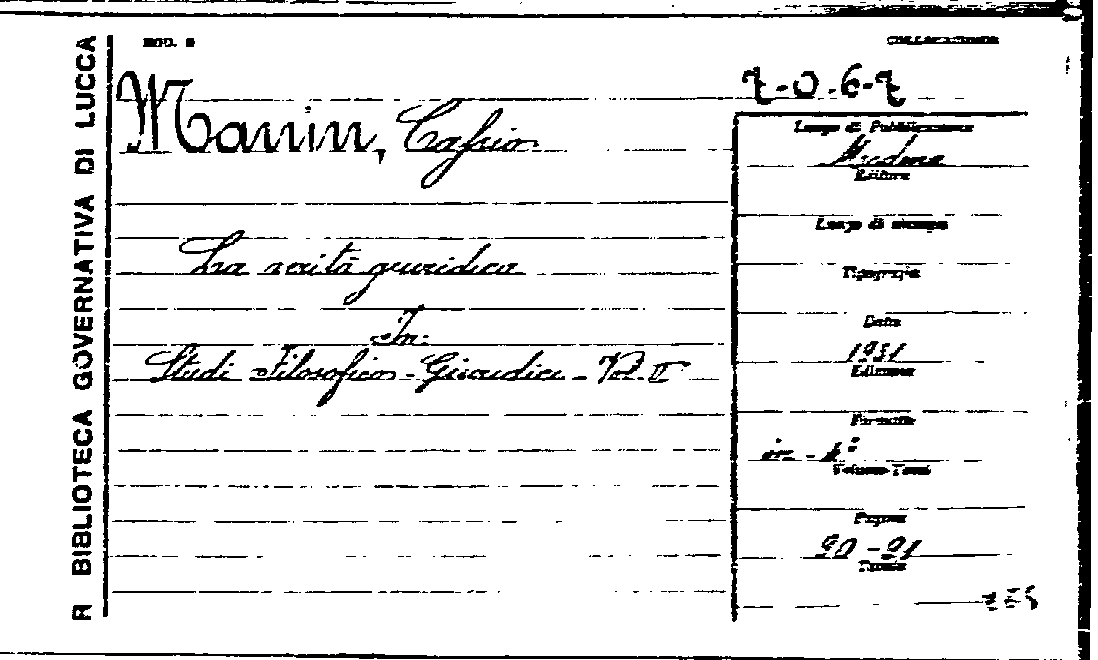 R BIBLIOTECA GOVERNATIVA DI LUCCA
MOD. 5
COLLOCAZIONE
7-0.6-7
Manin,
Luogo di Pubblicazione
Modena
Editore
Luogo di stampa
La verità giuridica
Tipografia
Data
In:
1931
Studi Filosofico-Giuridici - Vol. II
Edizione
Formato
in - 4°
Volume-Tomi
Pagine
90-91
Tavole